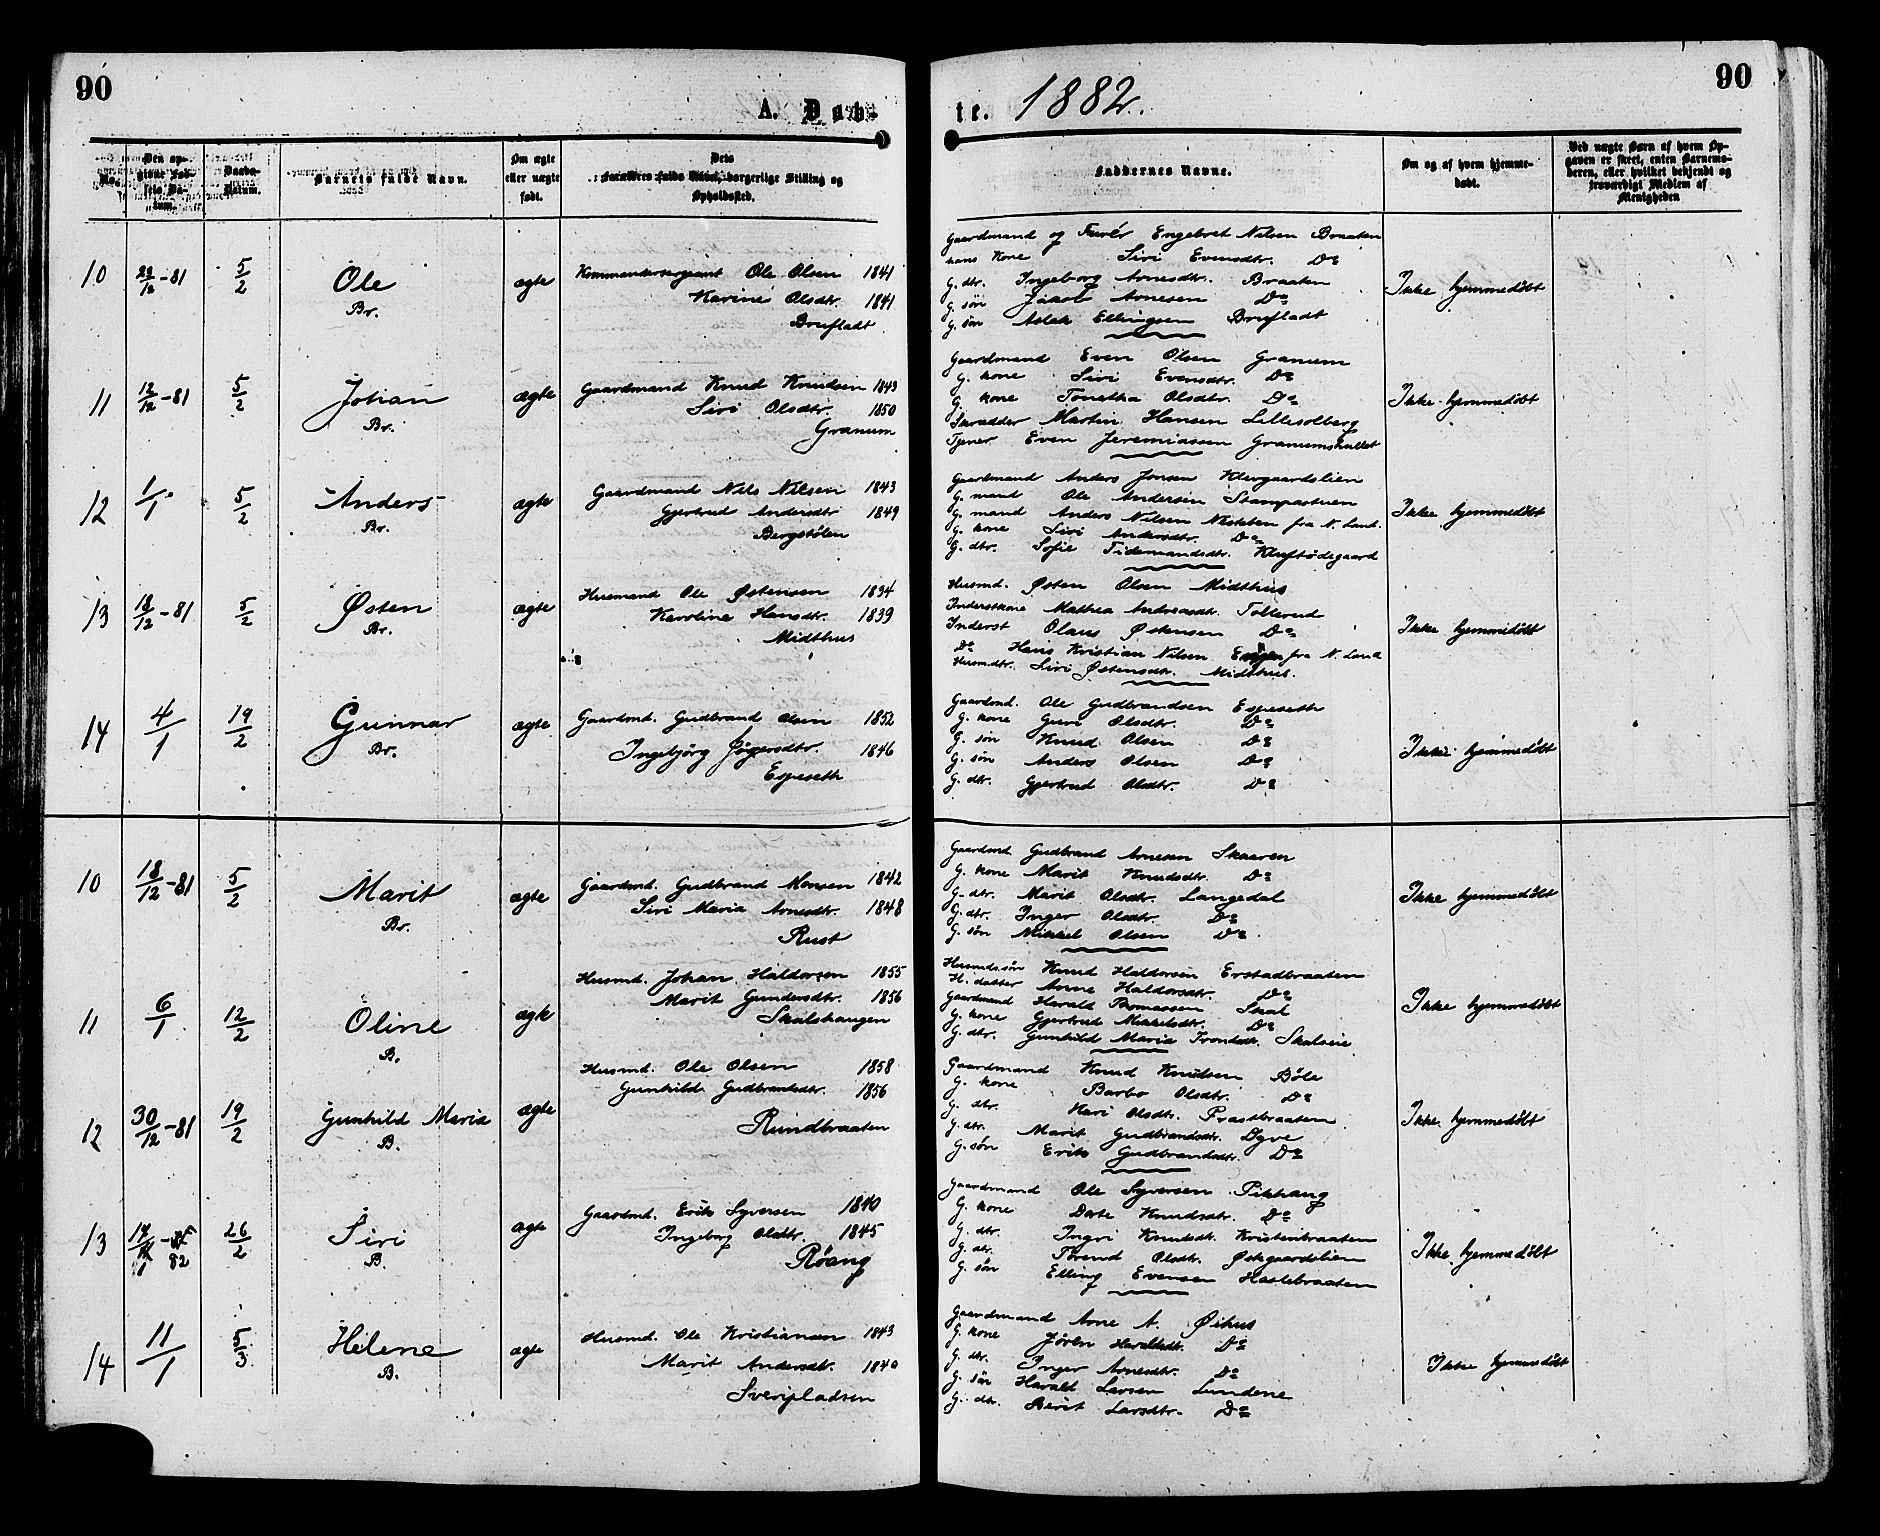 90
A. Døb-
te. 1882.
90
No.
Den opgivne Fødsels Datum.
Daabs-Datum.
Barnets fulde Navn.
Om ægte eller uægte født.
Dets Forældres fulde Navn, borgerlige Stilling og Opholdssted.
Faddernes Navne.
Om og af hvem hjemmedøbt.
Ved uægte Børn af hvem Opgaven er skeet, enten Barnemoderen, eller hvilket bekjendt og troværdigt Medlem af Menigheden
10 29/12-81 5/2 Ole Br. ægte
Kommandersergeant Ole Olsen 1841
Karine Olsdtr. 1841
Brufladt
Gaardmand og Enebret Nilsen Braaten
hans Kone Siri Evensdtr. Do
G. dtr. Ingeborg Arnesdtr. Braaten
G. søn Jakob Arnesen Do
G. søn Aslak Ellingsen Brufladt
Ikke hjemmedøbt
11 12/12-81 5/2 Johan Br. ægte
Gaardmand Knud Knudsen 1843
Siri Olsdtr. 1850
Granum
Gaardmand Even Olsen Granum
G. kone Siri Evensdtr. Do
G. kone Tonetha Olsdtr. Do
Skrædder Martin Hansen Lillesolberg
Tjener Even Jeremiassen Granumshullet
Ikke hjemmedøbt
12 1/1 5/2 Anders Br. ægte
Gaardmand Nils Nilsen 1843
Gjertrud Andersdtr 1849
Bergstølen
Gaardmand Anders Jonsen Klevgaardslien
G. mand Ole Andersen Stampestuen
G. mand Anders Nilsen fra N. Land.
G. kone Siri Andersdtr. Do
G. dtr. Sofie Tidemandsdtr. Kluftødegaard
Ikke hjemmedøbt
13 18/12-81 5/2 Østen Br. ægte
Husmand Ole Østensen 1834
Karoline Hansdtr. 1839
Midthus
Husmd. Østen Olsen Midthus
Inderstkone Mathea Andreasdtr. Tollerud
Inderst Olaus Østensen Do
Do Hans Kristian Nilsen Engen fra N. Land
Husmdtr. Siri Østensdtr. Midthus.
Ikke hjemmedøbt
14 4/1 19/2 Gunnar Br. ægte
Gaardmd. Gudbrand Olsen 1852
Ingebjørg Jøgersdtr. 1846
Espeseth
Gaardmd. Ole Gudbrandsen Espeseth
G. kone Guri Olsdtr. Do
G. søn Knud Olsen Do
G. søn Anders Olsen Do
G. dtr. Gjertrud Olsdtr. Do
Ikke hjemmedøbt
10 18/12-81 5/2 Marit Br. ægte
Gaardmd. Gudbrand Monsen 1842
Siri Maria Arnesdtr. 1848
Rust
Gaardmd Gudbrand Arnesen Skaaren
G. kone Marit Knudsdtr. Do
G. dtr. Marit Olsdtr. Langedal
G. dtr. Inger Olsdtr. Do
G. søn Mikkel Olsen Do
Ikke hjemmedøbt
11 6/1 12/2 Oline B. ægte
Husmd. Johan Haldorsen 1855
Marit Gundersdtr. 1856
Skalshaugen
Husmdssøn Knud Haldorsen Erstadbraaten
H. datter Anne Haldorsdtr. Do
Gaardmand Harald Thomassen Skal
G. kone Gjertrud Mikkelsdtr. Do
G. dtr. Gunhild Maria Trondsdtr. Skalseie
Ikke hjemmedøbt
12 30/12-81 19/2 Gunhild Maria B. ægte
Husmd. Ole Olsen 1858
Gunhild Gudbrandsdtr. 1856
Rundbraaten
Gaardmand Knud Knudsen Bøle
G. kone Barbo Olsdtr. Do
G. dtr. Kari Olsdtr. Prastbraaten
G. dtr. Marit Gudbrandsdtr. Dyve
G. søn Erik Gudbrandsdtr. Do
Ikke hjemmedøbt
13 17/1 82 26/2 Siri B. ægte
Gaardmd. Erik Syversen 1840
Ingeborg Olsdtr. 1845
Røang
Gaardmand Ole Syversen Pikhaug
G. kone Dorte Knudsdtr. Do
G. dtr. Ingri Knudsdtr. Kristenbraaten
G. dtr. Torend Olsdtr. Østgaardslien
G. søn Elling Evensen Haslebraaten
Ikke hjemmedøbt
14 11/1 5/3 Helene B. ægte
Husmd. Ole Kristiansen 1843
Marit Andersdtr. 1840
Sveripladsen
Gaardmand Arne A. Øihus
G. kone Jøren Haraldsdtr. Do
G. dtr. Inger Arnesdtr. Do
G. søn Harald Larsen Lundene
G. dtr. Berit Larsdtr. Do
Ikke hjemmedøbt